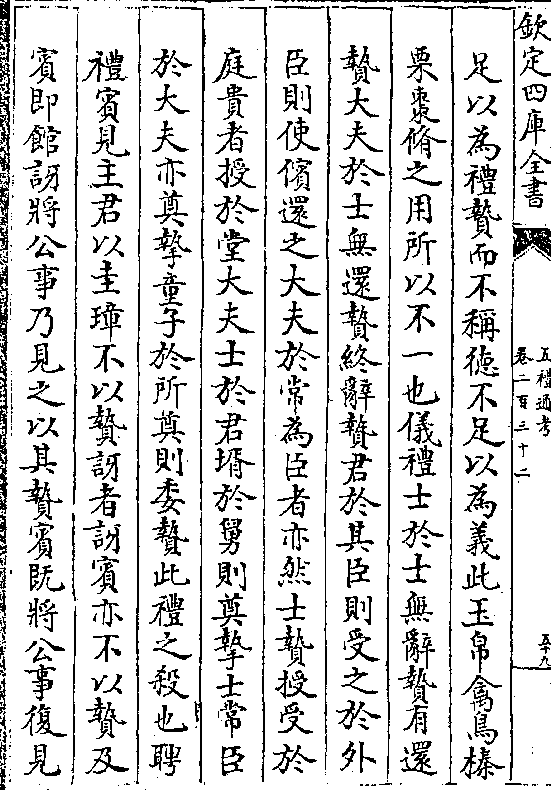 欽定四庫全書
五禮通考
卷二百三十二
五十九
足以為禮贄而不稱德不足以為義此玉帛禽鳥榛
栗棗脩之用所以不一也儀禮士於士無辭贄有還
贄大夫於士無還贄終辭贄君於其臣則受之於外
臣則使儐還之大夫於常為臣者亦然士贄授受於
庭貴者授於堂大夫士於君壻於舅則奠摯士常臣
於大夫亦奠摯童子於所奠則委贄此禮之殺也聘
禮賓見主君以圭璋不以贄訝者訝賓亦不以贄及
賓即館訝將公事乃見之以其贄賓既將公事復見